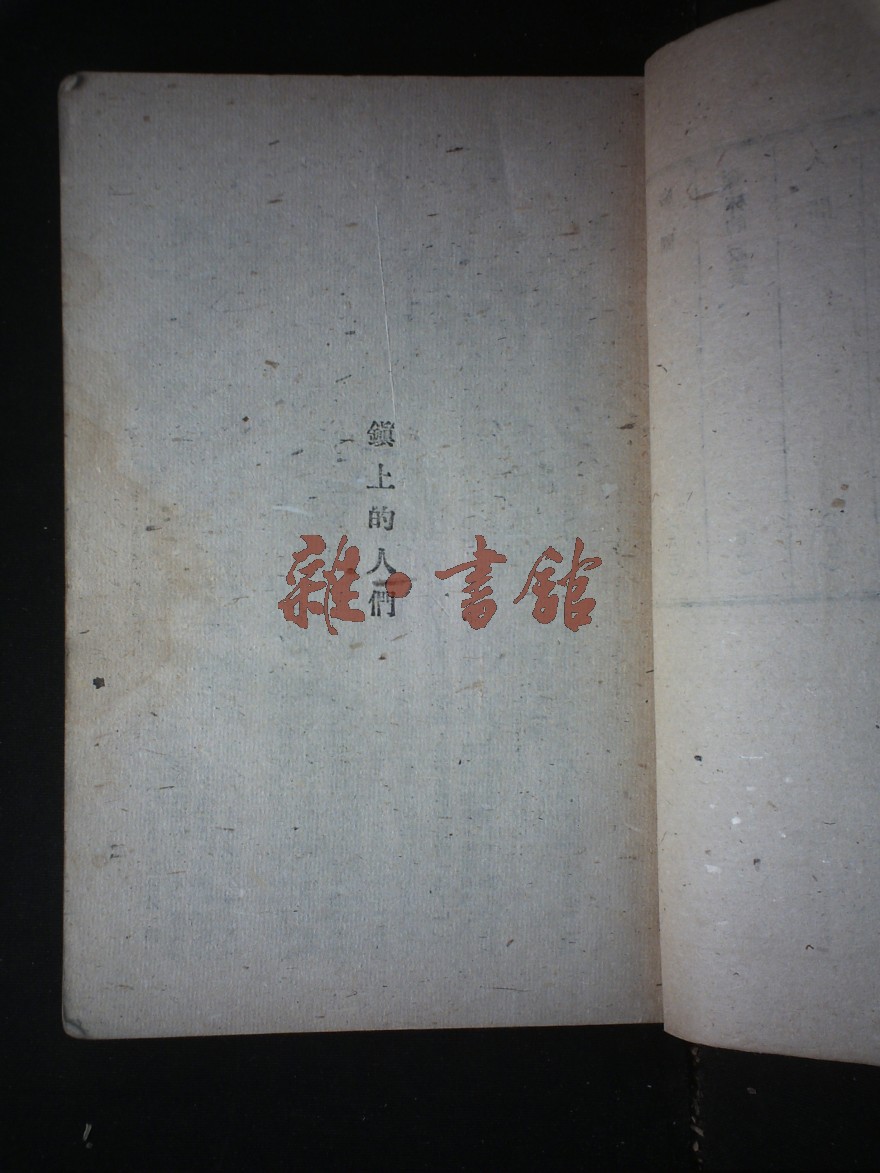 鎭上的人們
雜·書館